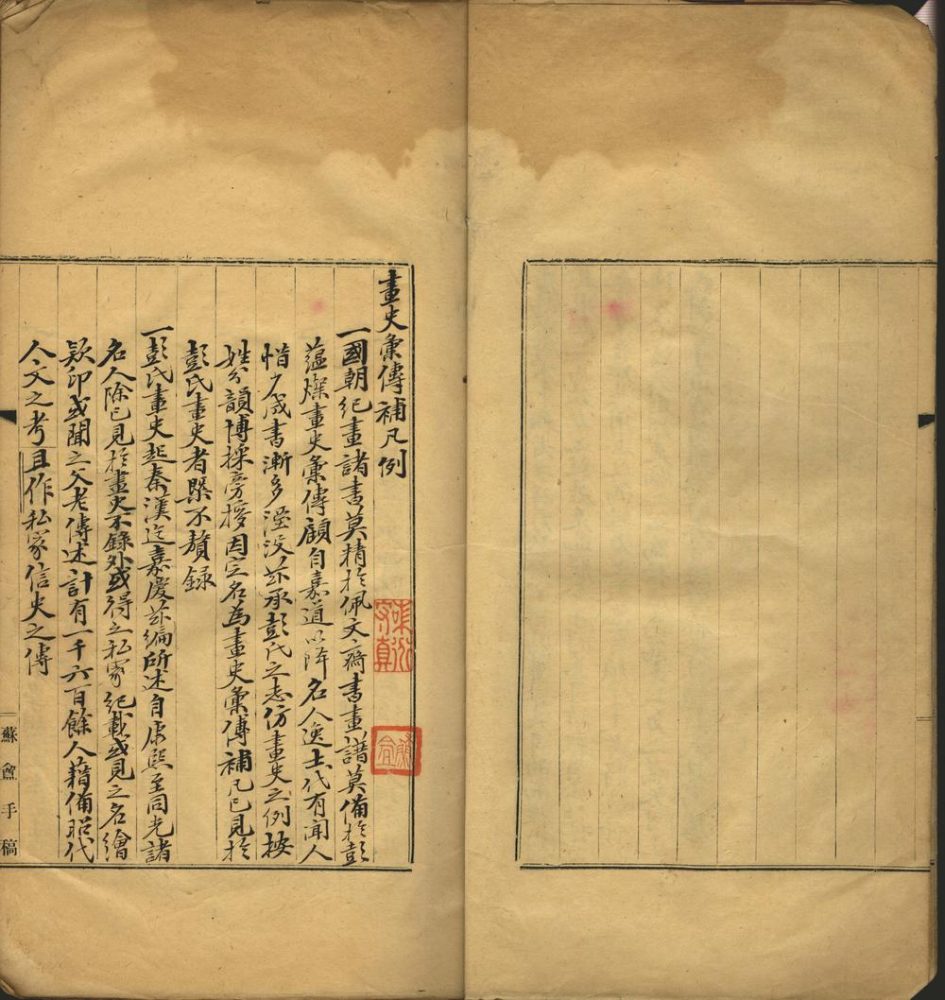 畫史彙傳補凡例
一國朝紀畫諸書莫精於佩文齋書畫譜莫備於彭
蘊燦畫史彙傳顧自嘉道以降名人逸士代有聞人
惜少成書漸多湮没茲承彭氏之志仿畫史之例按
姓分韻博採旁搜因定名為畫史彙傳補凡已見於
彭氏畫史者槩不贅録
一彭氏畫史起秦漢迄嘉慶茲編所述自康熙至同光諸
名人除已見於畫史不錄外或得之私家紀載或見之名繪
欵印或聞之父老傳述計有一千六百餘人藉備昭代
人文之考且作私家信史之傳
蘇盦手稿